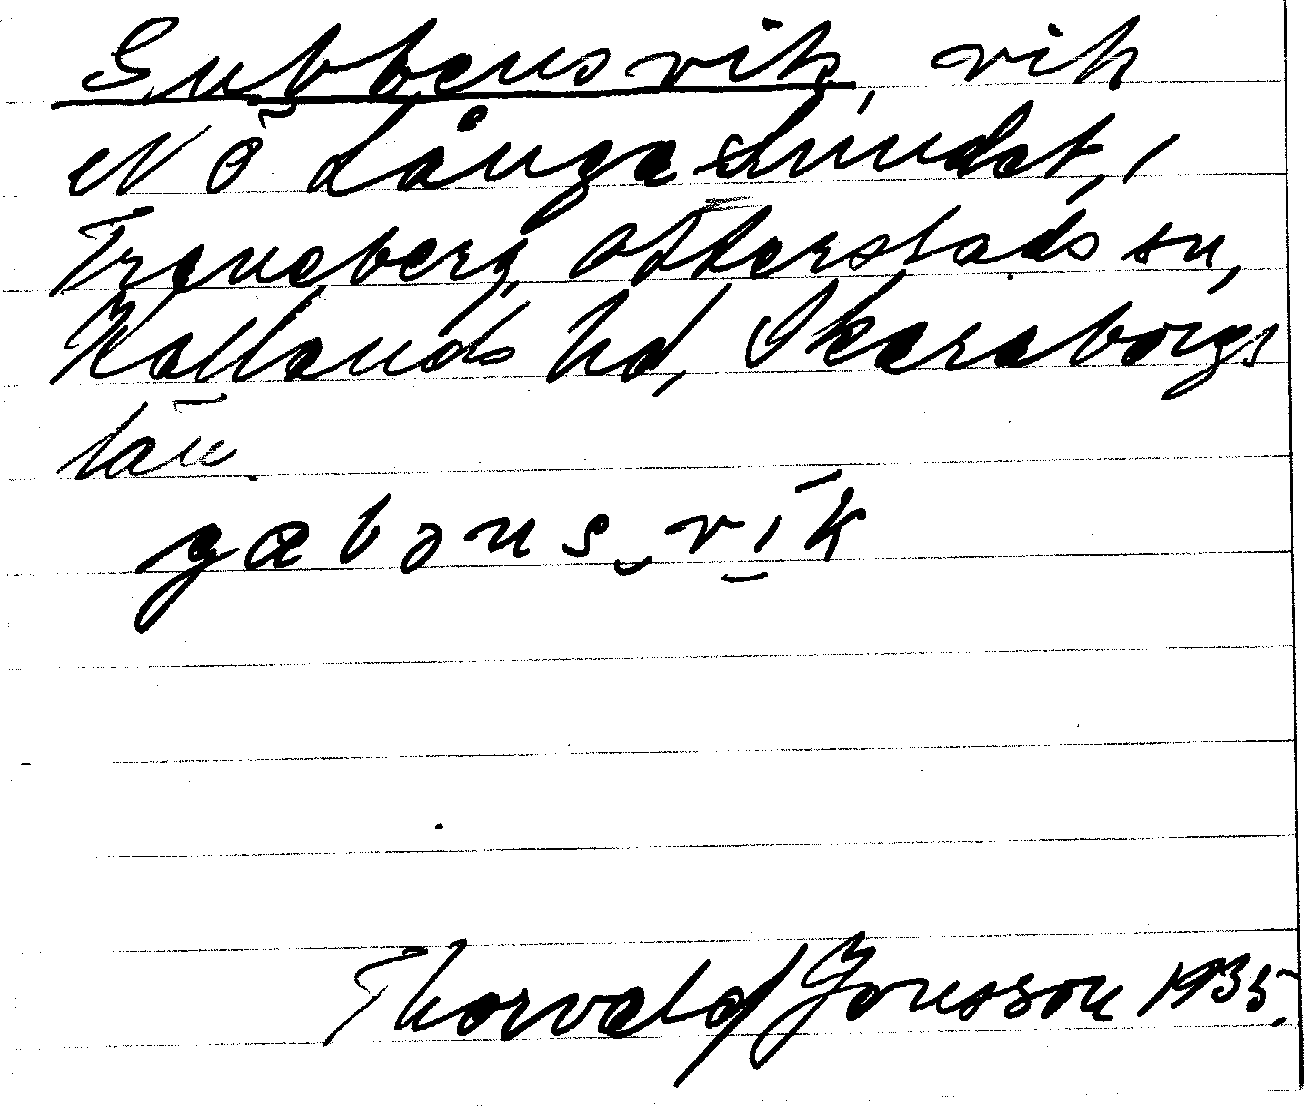 Gubbensvik, vik
N Ö Långa Sundet, i
Traneberg, Otterstads sn,
Kallands hd, Skaraborgs
län.
gæbəns‿vīk
Thorvald Jonsson 1935.